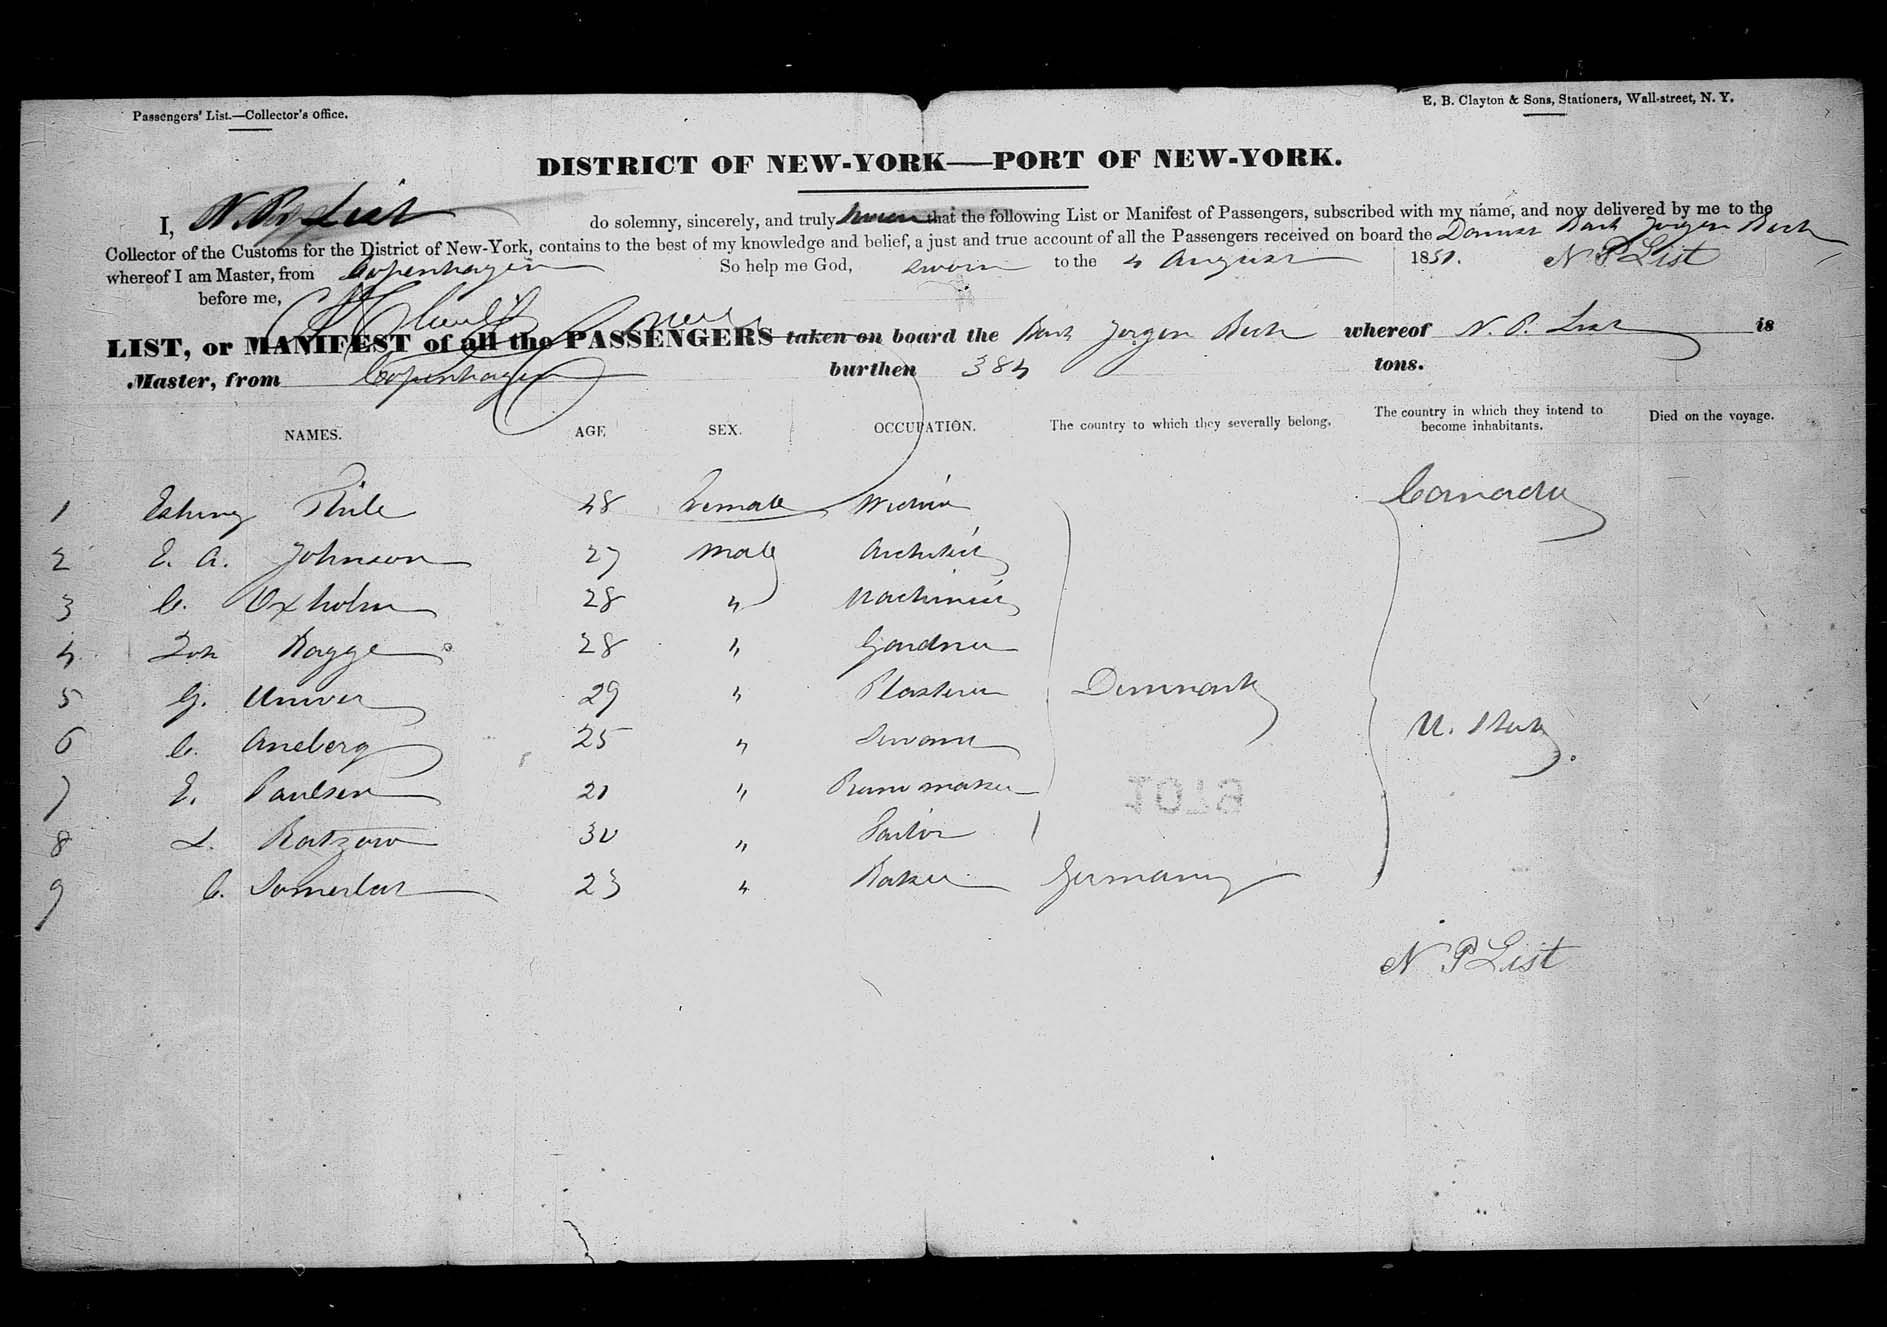 Passengers' List.—Collector's Office.
E. B. Clayton & Sons, Stationers, Wall-street, N. Y.
DISTRICT OF NEW-YORK—PORT OF NEW-YORK.
I, N. P. List do solemny, sincerely, and truly swear that the following List or Manifest of Passengers, subscribed with my name, and now delivered by me to the
Collector of the Customs for the District of New-York, contains to the best of my knowledge and belief, a just and true account of all the Passengers received on board the Danish Bark Jorgen
whereof I am Master, from Copenhagen So help me God, sworn to the 4 August 1851. N P List
before me,
LIST, or MANIFEST of all the PASSENGERS taken on board the Bark Jorgen whereof N. P. List is
Master, from Copenhagen burthen 384 tons.
NAMES. AGE SEX. OCCUPATION. The country to which they severally belong. The country in which they intend to become inhabitants. Died on the voyage.
1 Thile 48 Female Canada
2 E. A. Johnson 27 Male Architect
3 C. Oxholm 28 " Machinist
4 Bagge 28 " Gardner
5 G. 29 " Plasterer Denmark
6 C. Aneberg 25 " Servant U. States.
7 E. Paulsen 21 " maker
8 L. Ratzow 30 " Tailor
9 C. 23 " Baker Germany
1079
N P List